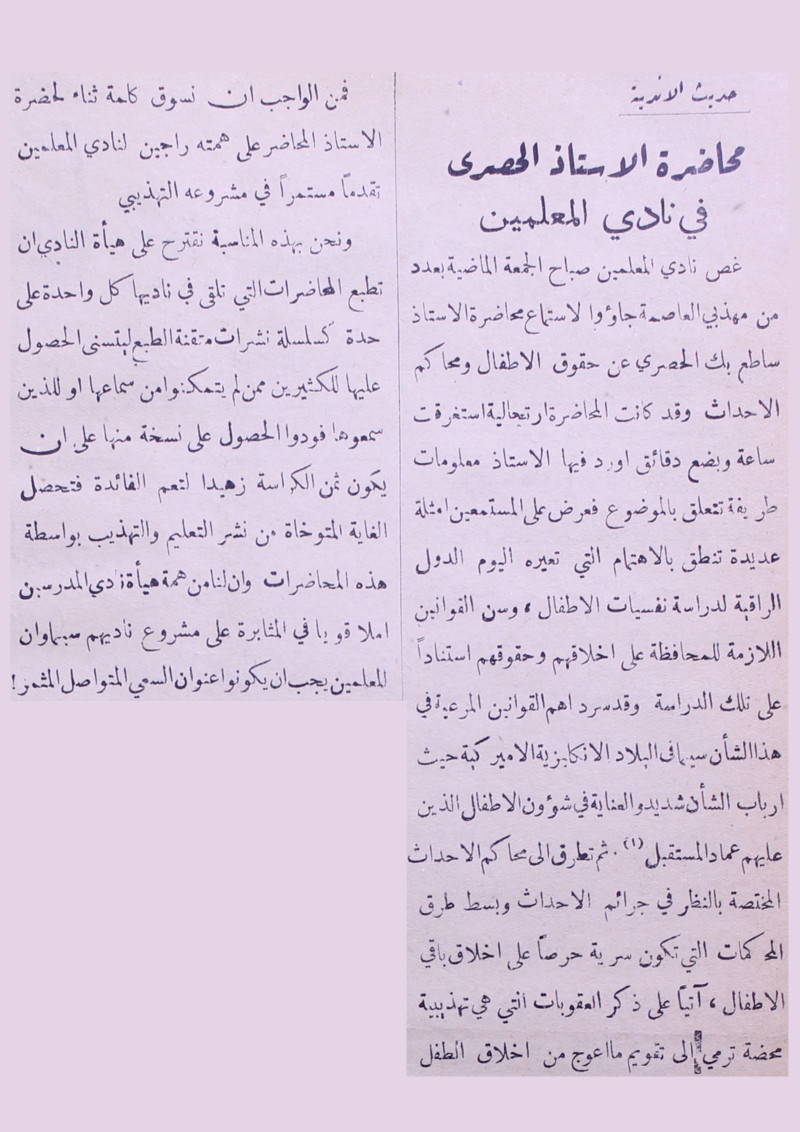 حديث الاندية
محاضرة الاستاذ الحصرى
في نادي المعلمين
غص نادي المعلمين صباح الجمعة الماضية بعدد
من مهذبي العاصمة جاؤوا لاستماع محاضرة الاستاذ
ساطع بك الحصري عن حقوق الاطفال ومحاكم
الاحداث وقد كانت المحاضرة ارتجالية استغرقت
ساعة وبضع دقائق اورد فيها الاستاذ معلومات
طريفة تتعلق بالموضوع فعرض على المستمعين امثلة
عديدة تنطق بالاهتمام التي تعيره اليوم الدول
الراقية لدراسة نفسيات الاطفال ، وسن القوانين
اللازمة للمحافظة على اخلاقهم وحقوقهم استناداً
على تلك الدراسة وقد سرد اهم القوانين المرعية في
هذا الشأن سيما في البلاد الانكليزية الاميركية حيث
ارباب الشأن شديدو العناية في شؤون الاطفال الذين
عليهم عماد المستقبل (١) . ثم تطرق الى محاكم الاحداث
المختصة بالنظر في جرائم الاحداث وبسط طرق
المحاكمات التي تكون سرية حرصاً على اخلاق باقي
الاطفال ، آتياً على ذكر العقوبات التي هي تهذيبية
محضة ترمي الى تقويم ما اعوج من اخلاق الطفل
فمن الواجب ان نسوق كلمة ثناء لحضرة
الاستاذ المحاضر على همته راجين لنادي المعلمين
تقدماً مستمراً في مشروعه التهذيبي
ونحن بهذه المناسبة نقترح على هيأة النادي ان
تطبع المحاضرات التي تلقى في ناديها كل واحدة على
حدة كسلسلة نشرات متقنة الطبع ليتسنى الحصول
عليها للكثيرين ممن لم يتمكنوا من سماعها او للذين
سمعوها فودوا الحصول على نسخة منها على ان
يكون ثمن الكراسة زهيدا لتعم الفائدة فتحصل
الغاية المتوخاة من نشر التعليم والتهذيب بواسطة
هذه المحاضرات وان لنا من همة هيأة نادي المدرسين
املا قويا في المثابرة على مشروع ناديهم سيما وان
المعلمين يجب ان يكونوا عنوان السعي المتواصل المثمر !